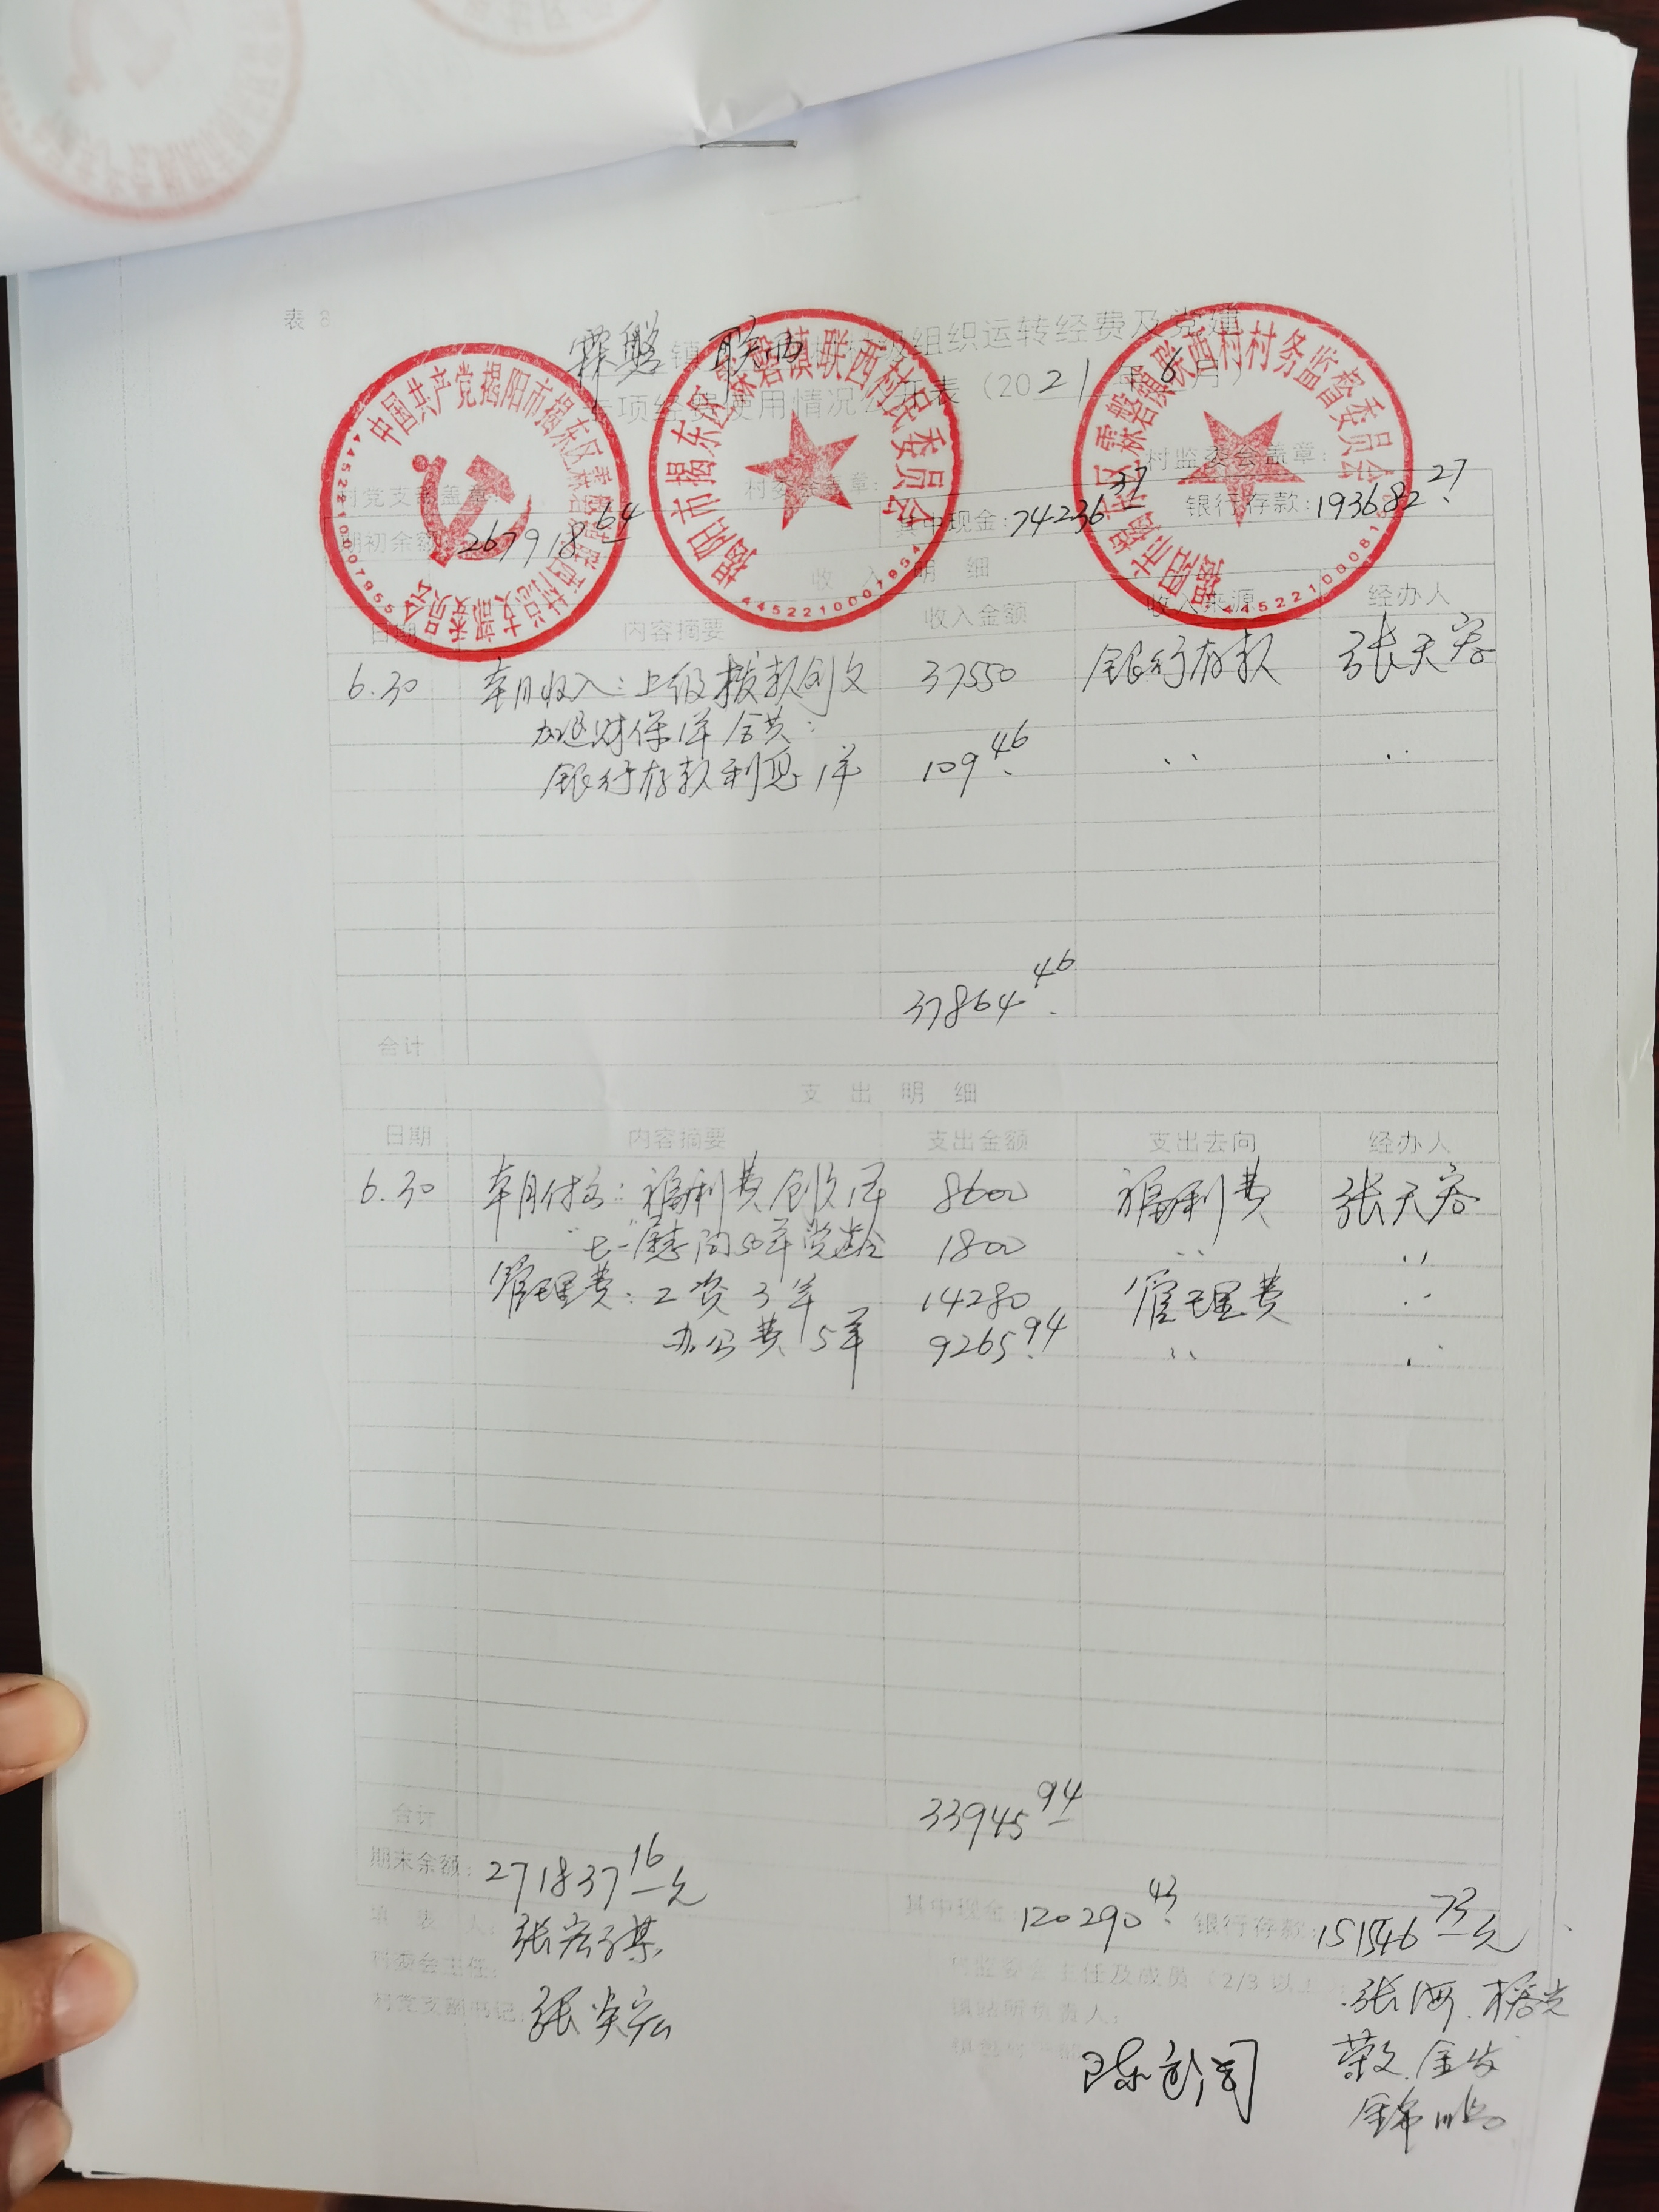 表 8
霖磐镇联西村级组织运转经费及党建
专项经费使用情况公开表（2021年6月）
中国共产党揭阳市揭东区霖磐镇联西村总支部委员会
揭阳市揭东区霖磐镇联西村民委员会
4452210007954
揭阳市揭东区霖磐镇联西村村务监督委员会
村党支部盖章 村委会盖章： 村监委会盖章：
期初余额 267918.64 其中现金：74236.37 银行存款：193682.27
收 入 明 细
日期 内容摘要 收入金额 收入来源 经办人
6.30 本月收入：上级拨款 37550 银行存款 张天容
银行存款利息1单 109.46 〃 〃
37864.46
合计
支 出 明 细
日期 内容摘要 支出金额 支出去向 经办人
6.30 本月付出：福利费 8600 福利费 张天容
"七一"慰问50年党龄 1800 〃 〃
管理费：工资3单 14280 管理费 〃
办公费15单 9265.94 〃 〃
合计 33945.94
期末余额：271837.16元 其中现金 120290.43 银行存款：151546.73元
填 表 人：
村委会主任： 村监委会主任及成员（2/3 以上
村党支部书记： 镇站所负责人：